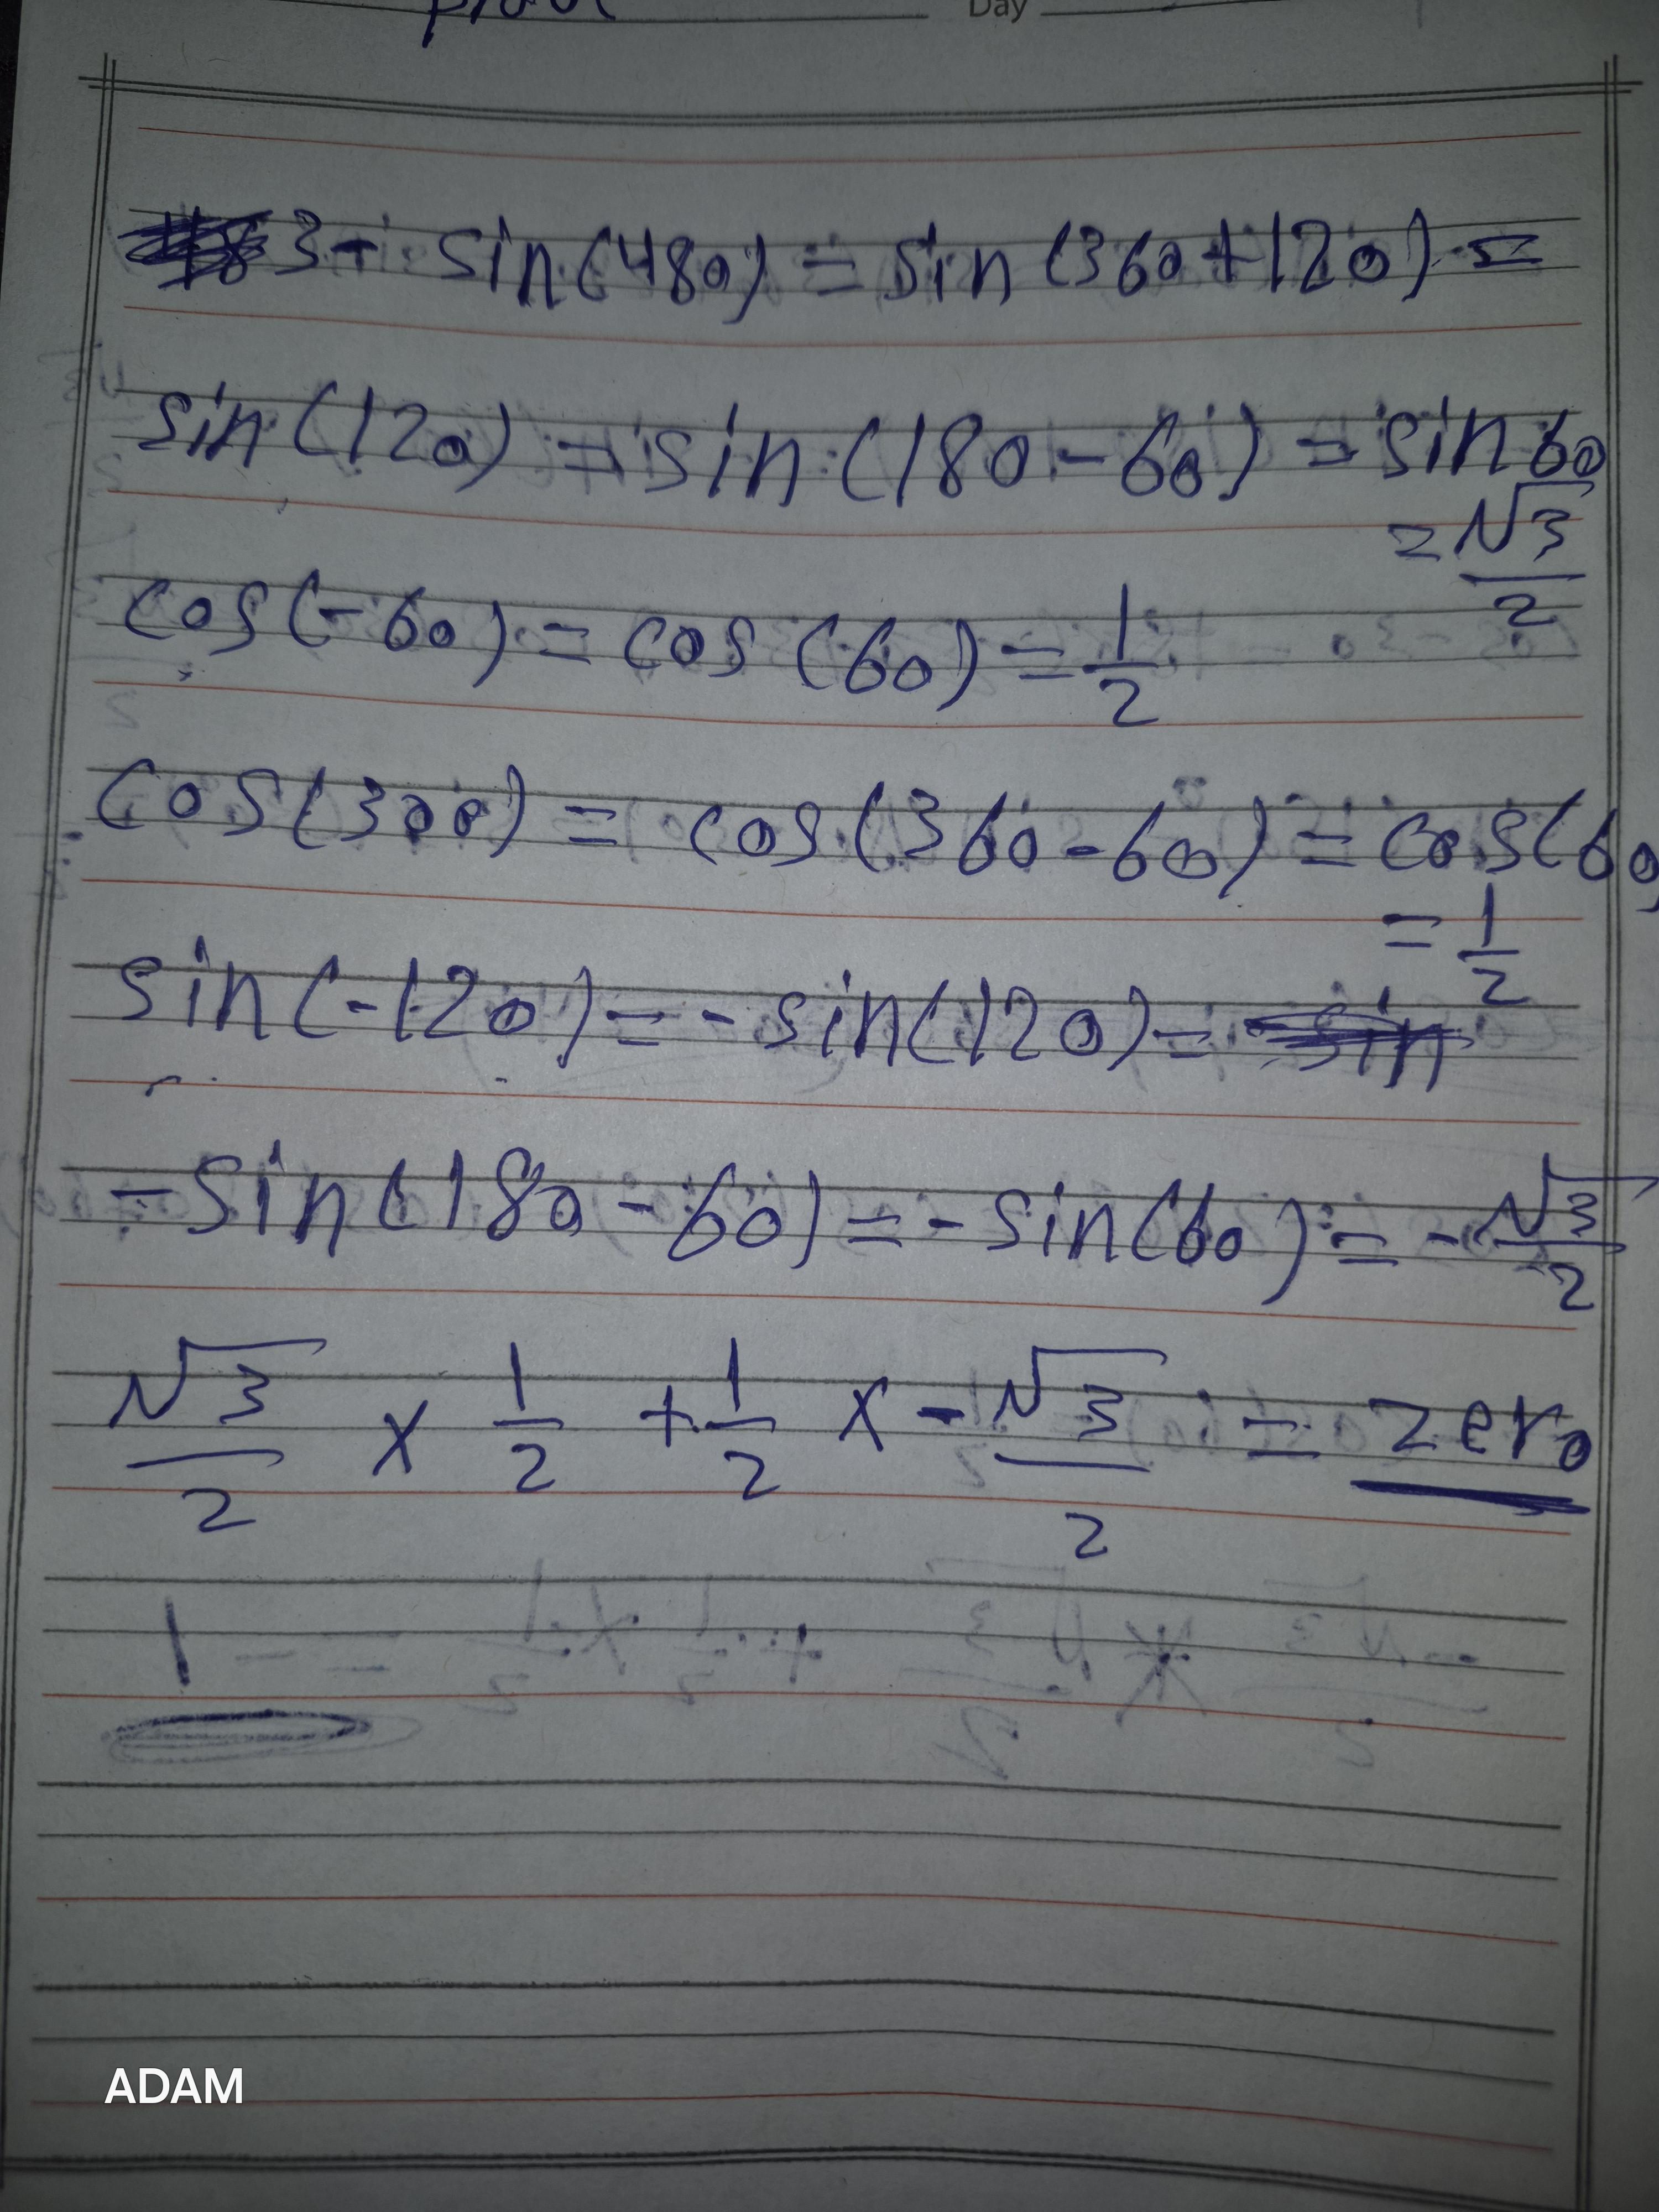 Day
3- sin(480) = sin(360+120) =
sin(120) = sin(180-60) = sin60
= √3/2
cos(-60) = cos(60) = 1/2
cos(300) = cos(360-60) = cos(60
= 1/2
sin(-120) = - sin(120) =
-sin(180-60) = - sin(60) = - √3/2
√3/2 × 1/2 + 1/2 × - √3/2 = zero
ADAM